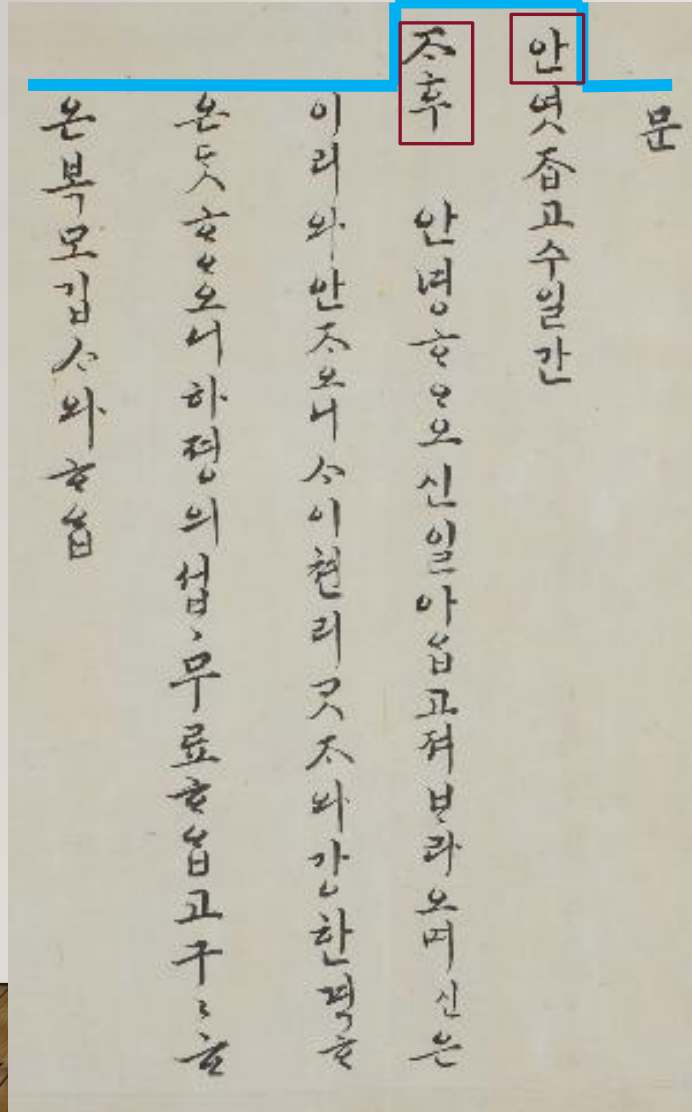 문
안엿ᄌᆞᆸ고수일간
ᄌᆞ후 안녕ᄒᆞᄋᆞ오신일아ᄋᆞᆸ고져ᄇᆞ라오며신은
이리와안ᄌᆞ오니ᄉᆞ이쳔리ᄀᆞᆺᄌᆞ와강한격ᄒᆞ
온ᄃᆞᆺᄒᆞᄋᆞ오니하졍의섭ヽ무료ᄒᆞᄋᆞᆸ고구ヽᄒᆞ
온복모깁ᄉᆞ와ᄒᆞᄋᆞᆸ